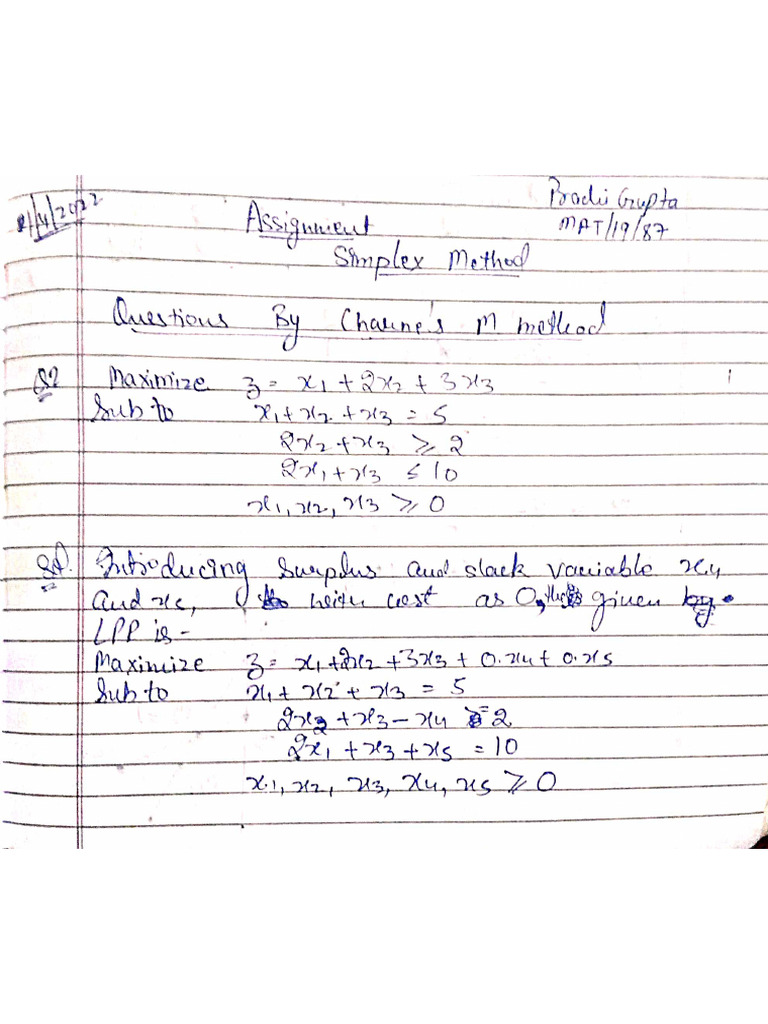 Assignment
MAT/19/87
Simplex Method
Questions By Charne's M method
Q2 Maximize z = x1 + 2x2 + 3x3
Sub to x1 + x2 + x3 = 5
2x2 + x3 ≥ 2
2x1 + x3 ≤ 10
x1, x2, x3 ≥ 0
Introducing surplus and slack variable x4
and x5, with cost as 0, given
LPP is -
Maximize z = x1 + 2x2 + 3x3 + 0.x4 + 0.x5
Sub to x1 + x2 + x3 = 5
2x2 + x3 - x4 = 2
2x1 + x3 + x5 = 10
x1, x2, x3, x4, x5 ≥ 0